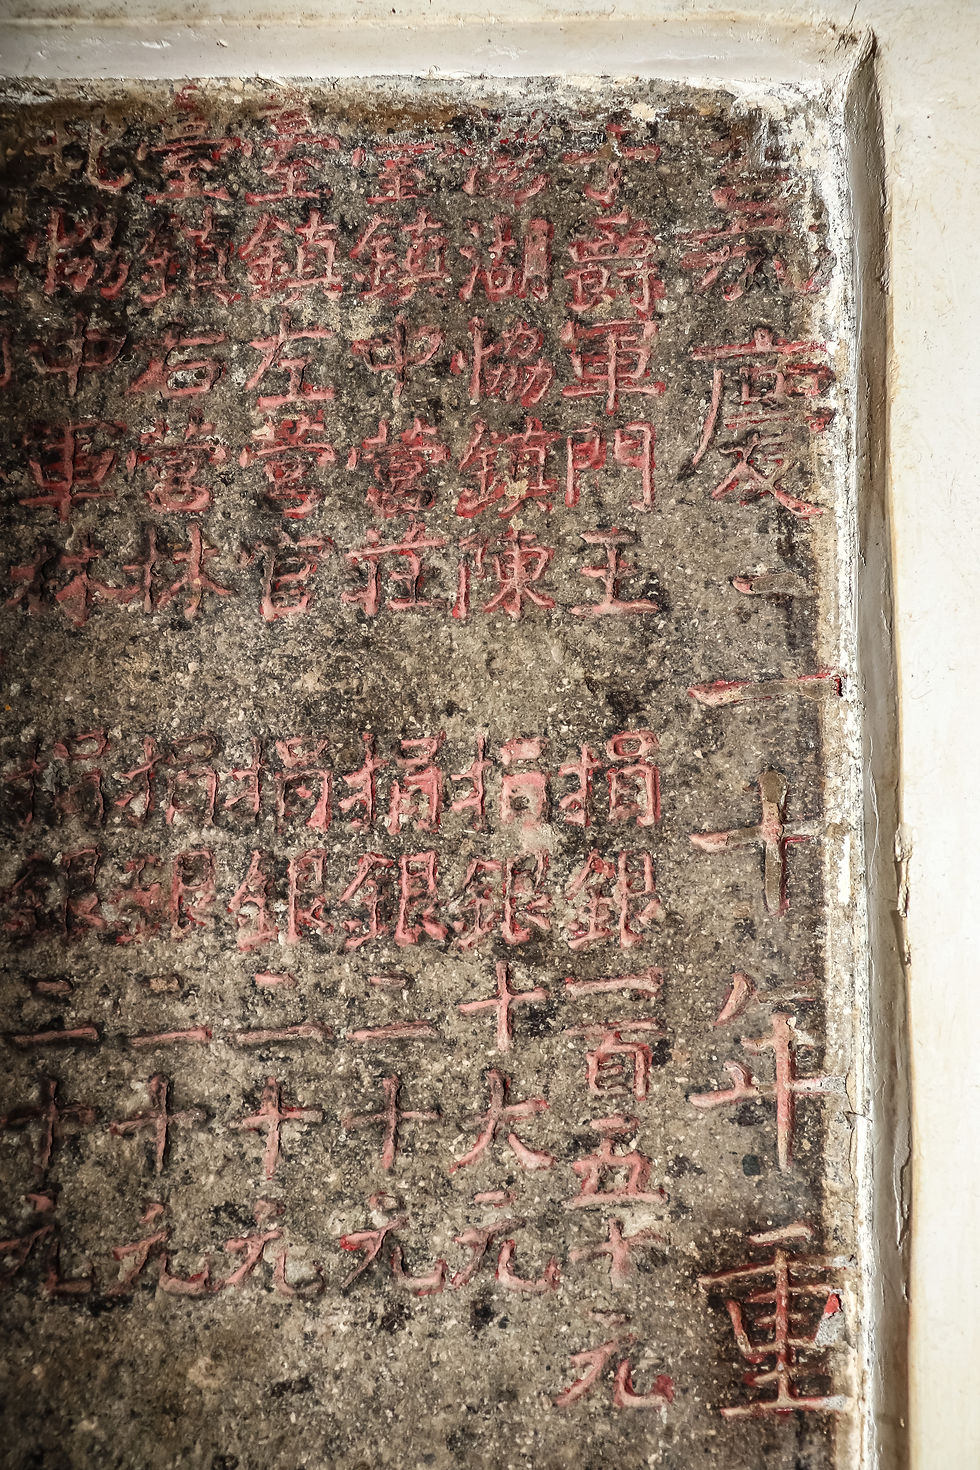 嘉慶二十年重
子爵軍門王 捐銀一百五十元
澎湖協鎮陳 捐銀十大元
臺鎮中營莊 捐銀二十元
臺鎮左營官 捐銀二十元
臺鎮右營林 捐銀二十元
北協中軍林 捐銀二十元